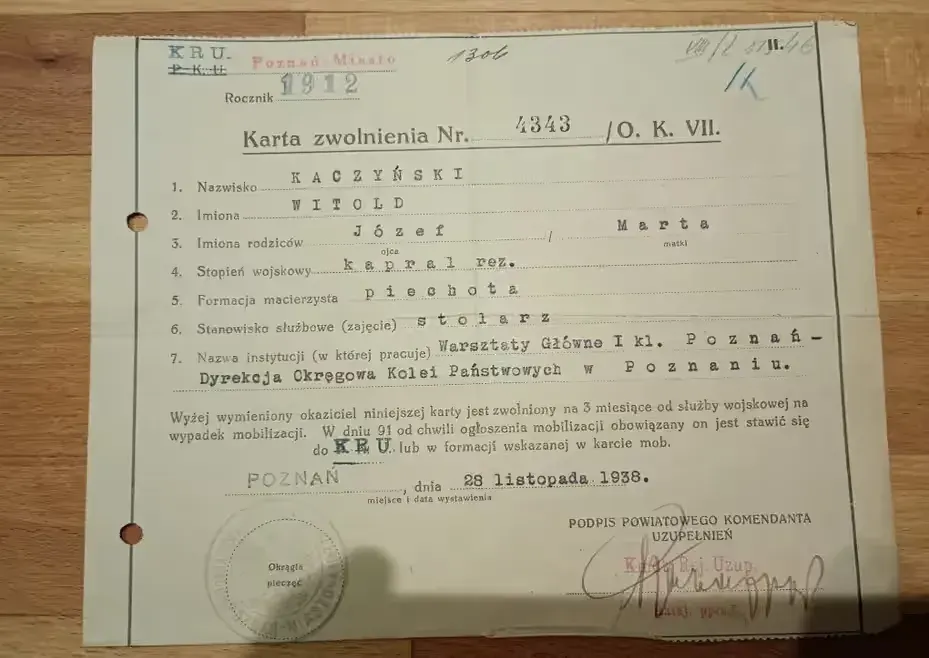 KRU.
P. K. U. Poznań-Miasto
1306
II.
Rocznik 1912
Karta zwolnienia Nr. 4343 /O. K. VII.
1. Nazwisko KACZYŃSKI
2. Imiona WITOLD
3. Imiona rodziców Józef / Marta
ojca matki
4. Stopień wojskowy kapral rez.
5. Formacja macierzysta piechota
6. Stanowisko służbowe (zajęcie) stolarz
7. Nazwa instytucji (w której pracuje) Warsztaty Główne I kl. Poznań-
Dyrekcja Okręgowa Kolei Państwowych w Poznaniu.
Wyżej wymieniony okaziciel niniejszej karty jest zwolniony na 3 miesiące od służby wojskowej na
wypadek mobilizacji. W dniu 91 od chwili ogłoszenia mobilizacji obowiązany on jest stawić się
do KRU. lub w formacji wskazanej w karcie mob.
POZNAŃ, dnia 28 listopada 1938.
miejsce i data wystawienia
PODPIS POWIATOWEGO KOMENDANTA
UZUPEŁNIEŃ
Okrągła
pieczęć
Rej. Uzup.